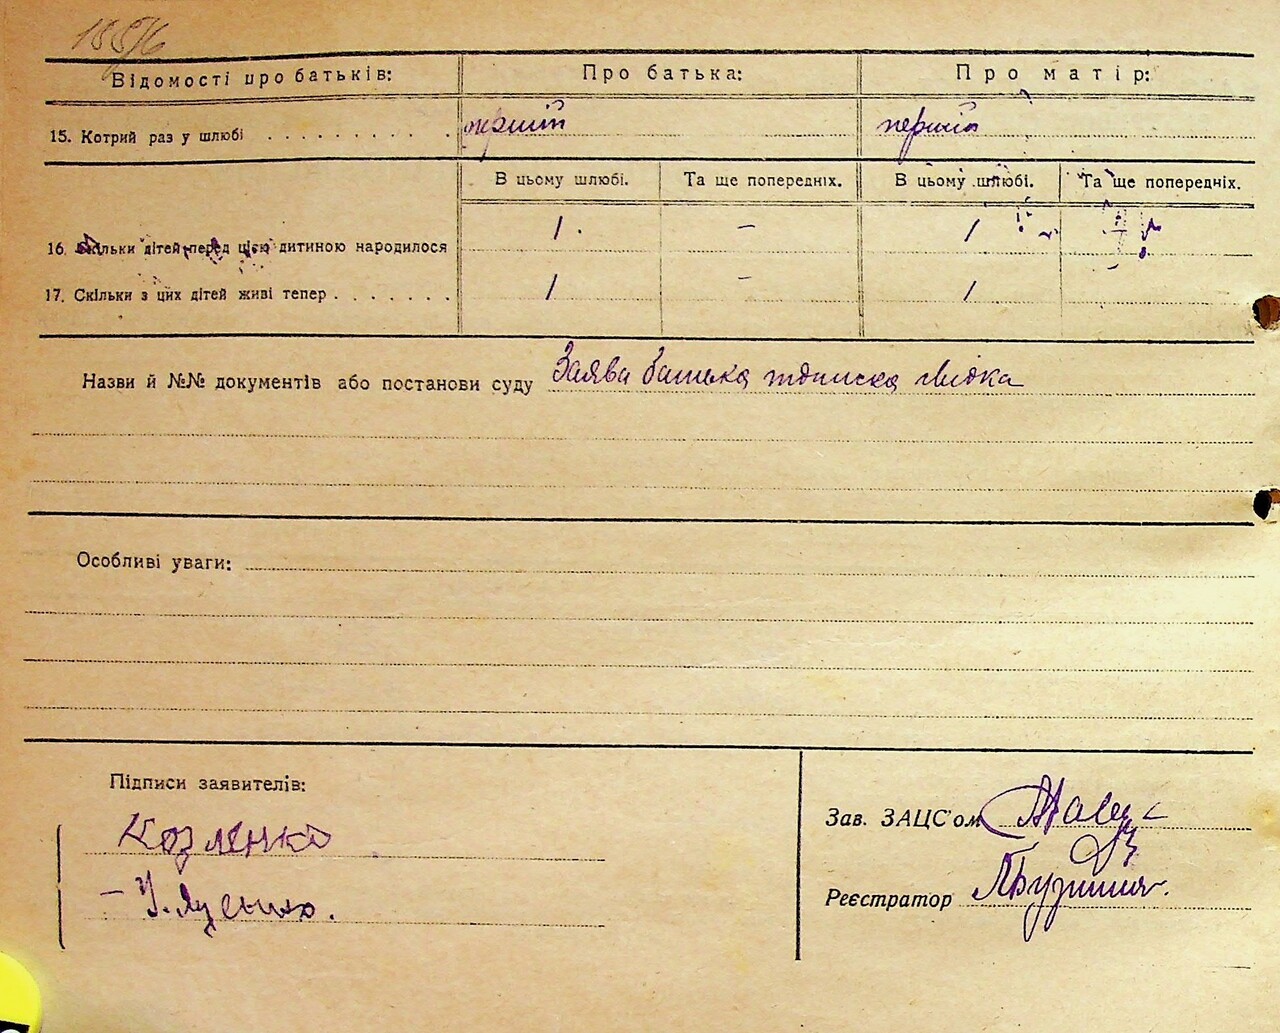 Відомості про батьків: Про батька: Про матір:
15. Котрий раз у шлюбі . . . . . . . . . . перший перший
В цьому шлюбі. Та ще попередніх. В цьому шлюбі. Та ще попередніх.
16. Скільки дітей перед цією дитиною народилося 1. – 1
17. Скільки з цих дітей живі тепер . . . . . . . 1 – 1
Назви й №№ документів або постанови суду Заява батька підписка свідка
Особливі уваги:
Підписи заявителів:
Козленко
Зав. ЗАЦС'ом
Реєстратор